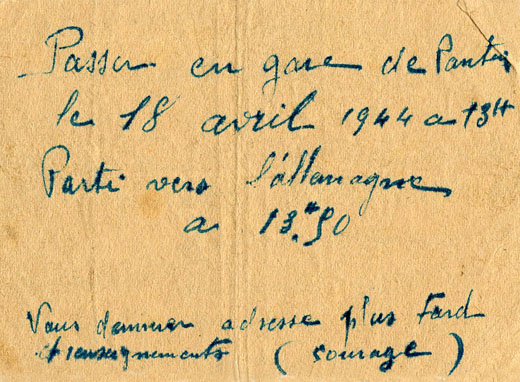 Passer en gare de Pantin
le 18 avril 1944 a 13H
Parti vers l'allemagne
a 13H50
Vous donnerer adresse plus tard
et renseignements (courage)